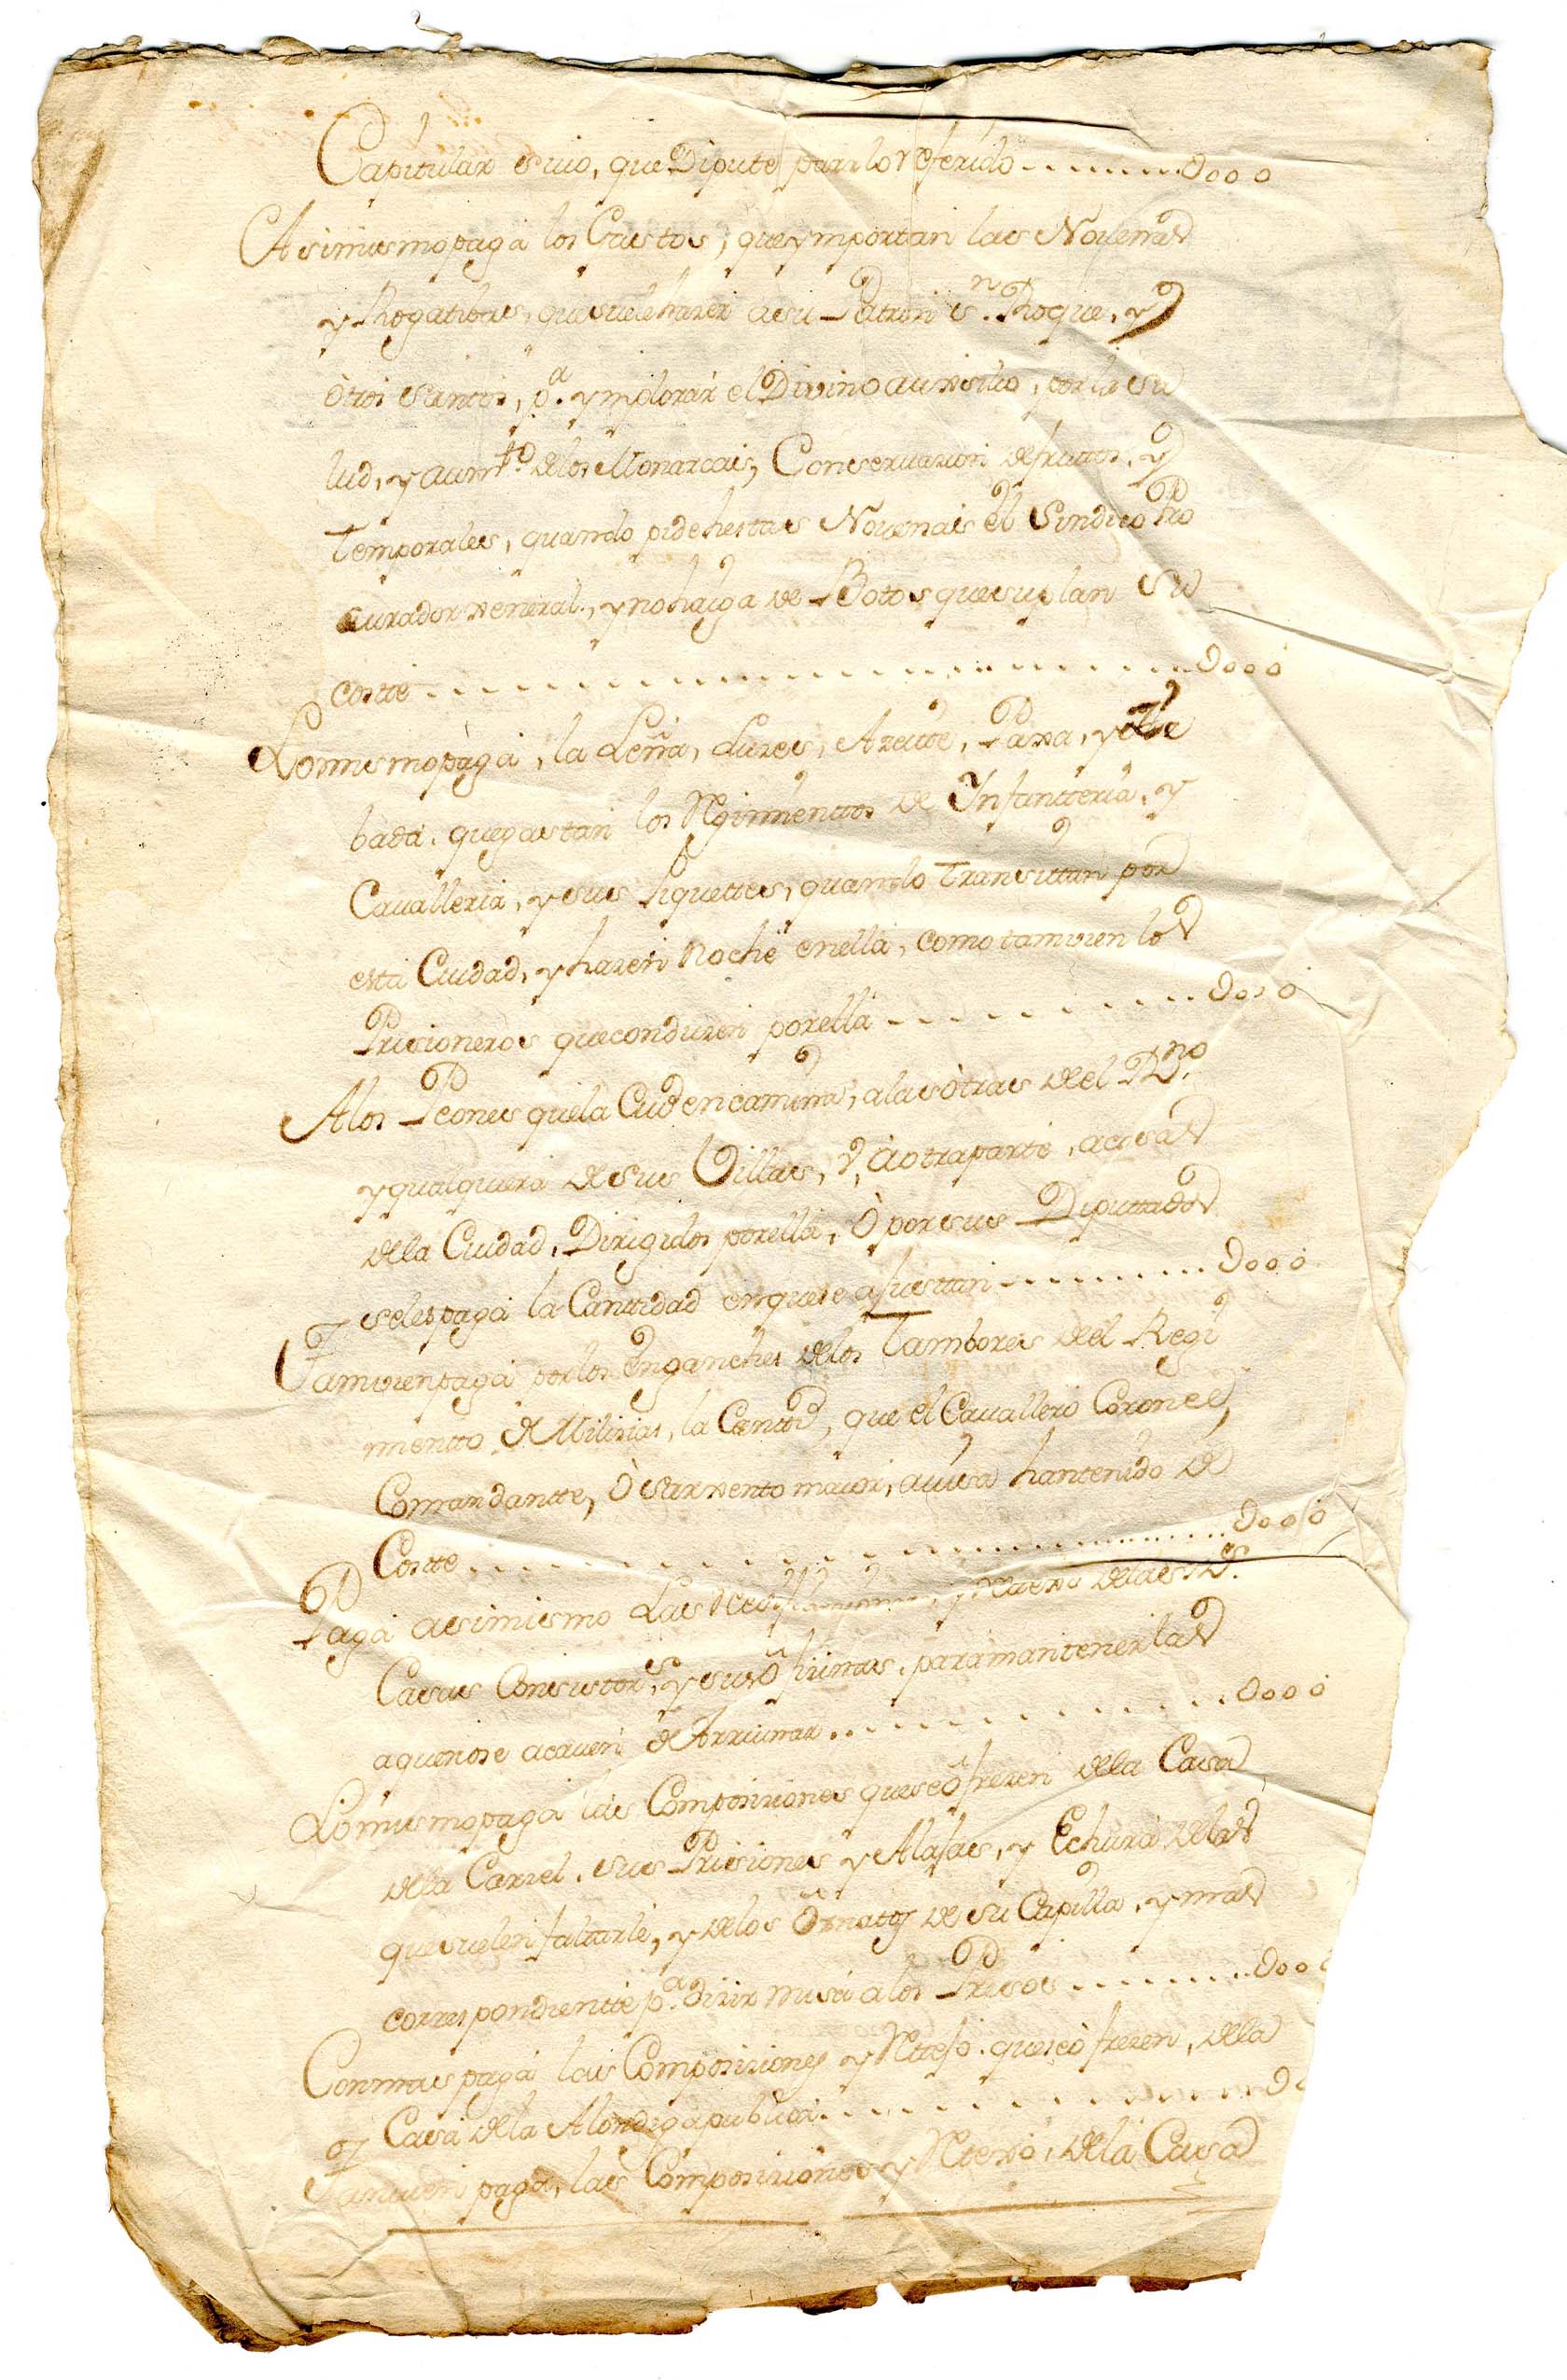 Capitular suio, que Dipute para lo referido ........ Dooo
Asimismo paga los Gastos, que ymportan las Novenas
y Rogatibas, que suele hazer a su Patron Sn. Roque, y
òtros Santos, pa. ymplorar el Divino auxsilio, por la Sa
lud, y aumto. de los Monarcas, Conservazion de fruttos, y
Temporales, quando pide hestas Novenas el Sindico Pro
curador xeneral, y no haiga de Botos que suplan Su
costte ........ Dooo
Lo mismo paga, la Leña, Luzes, Azeitte, Paxa, y
bada, que gastan los Rejimientos de Infantteria, y
Cavalleria, y sus Piquettes, quando transittan por
esta Ciudad, y hazen noche en ella, como tamvien los
Prisioneros que conduzen por ella ........ Dooo
A los Peones que la Ciud encamina, a las òtras del Rno.
y qualquiera de sus Villas, ù, à otra parte, a cosas
de la Ciudad, Dirigidos por ella, ò por sus Diputtados
se les paga la Canttidad en que se ajusttan ........ Dooo
Tamvien paga por los Enganches de los Tambores del Regi
mientto de Milizias, la Canttd, que el Cavallero Coronel,
Comandantte, ò Sarxento maior, avisa han tenido de
Costte ........ Dooo
Paga asimismo Las y Reparo de las Rs.
Casas Consistors, y sus ofizinas, para mantenerlas
a que no se acaven de Arruinar ........ Dooo
Lo mismo paga las Composiziones que se ofrezen de la Casa
de la Carzel, sus Prisiones y Alajas, y Echura de las
que suelen faltarle, y de los Ornatos de su Capilla, y mas
correspondientte pa. dezir misa a los Presos ........ Doo
Con mas paga las Composiziones y que se ofrezen, de la
Casa de la Alondiga publica ........ D
Tamvien paga, las Composiziones y Reparo, de la Casa